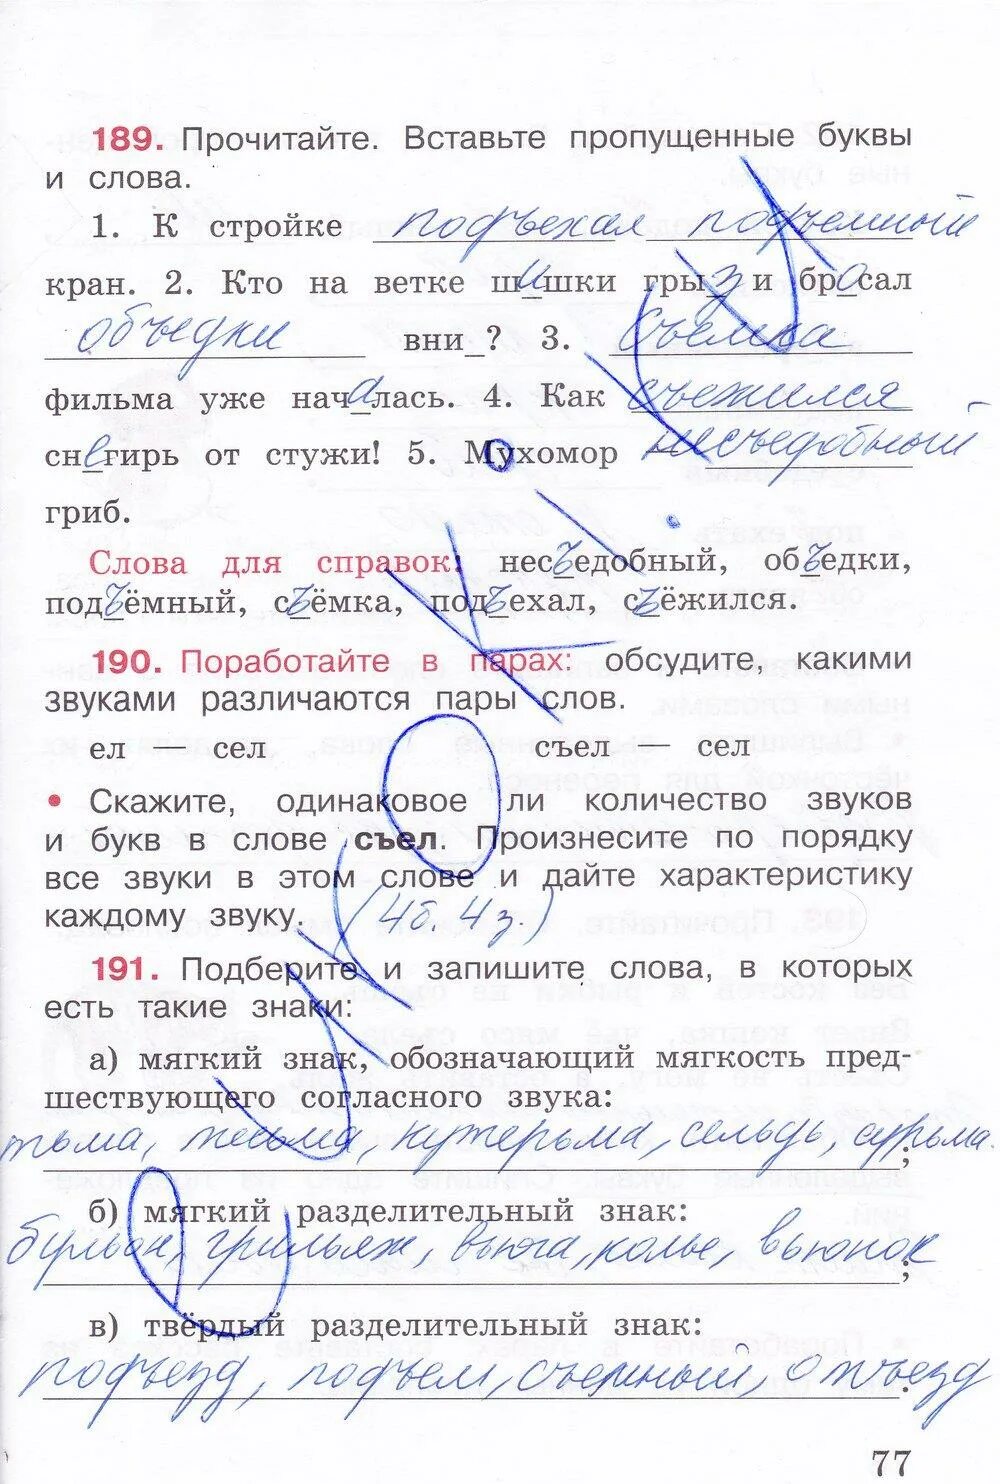 189. Прочитайте. Вставьте пропущенные буквы
и слова.
1. К стройке подъехал подъемный
кран. 2. Кто на ветке шишки грыз и бросал
объедки вни_? 3. Съемка
фильма уже началась. 4. Как съежился
снегирь от стужи! 5. Мухомор несъедобный
гриб.
Слова для справок: несъедобный, объедки,
подъёмный, съёмка, подъехал, съёжился.
190. Поработайте в парах: обсудите, какими
звуками различаются пары слов.
ел — сел съел — сел
• Скажите, одинаковое ли количество звуков
и букв в слове съел. Произнесите по порядку
все звуки в этом слове и дайте характеристику
каждому звуку. (4б. 4з.)
191. Подберите и запишите слова, в которых
есть такие знаки:
а) мягкий знак, обозначающий мягкость пред-
шествующего согласного звука:
тьма, тесьма, кутерьма, сельдь, сурьма.;
б) мягкий разделительный знак:
бульон, грильяж, вьюга, колье, вьюнок;
в) твёрдый разделительный знак:
подъезд, подъем, съемный, отъезд.
77